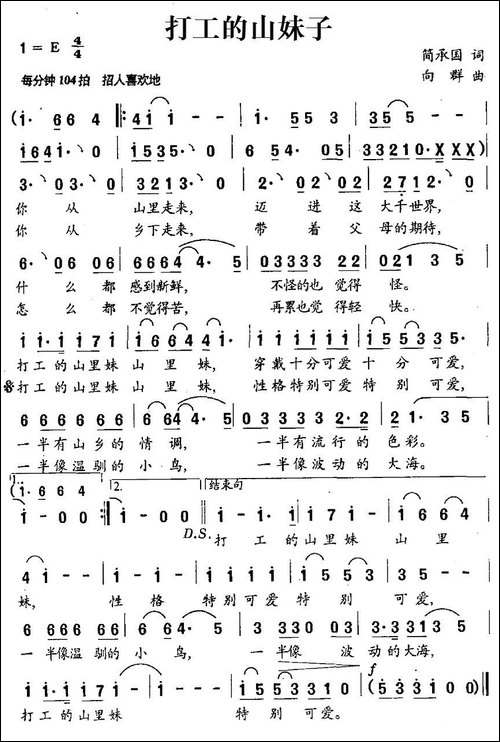 打工的山妹子
1 = E 4/4
简承国 词
每分钟 104 拍 招人喜欢地
向 群 曲
(i· 6 6 4 | 4 i i - | i - - 5 | 3 5 - - |
i 6 4 i· 0 | i 5 3 5· 0 | 6 5 4· 0 5 | 3 3 2 1 0· X X X) |
3· 0 3· 0 | 3 2 1 3· 0 | 2· 0 2 0 2 | 2 7 1 2· 0 |
你 从 山里走来, 迈 进 这 大千世界,
你 从 乡下走来, 带 着 父 母的期待,
6· 0 6 0 6 | 6 6 6 4 4· 5 | 0 3 3 3 3 2 2 | 0 2 1 3 5 |
什 么 都 感到新鲜, 不怪的也 觉得 怪。
怎 么 都 不觉得苦, 再累也觉 得轻 快。
i i· i i 7 i | i 6 6 4 4 i | i i· i i 7 i | i 5 5 3 3 5 |
打 工 的 山 里 妹 山 里 妹, 穿 戴 十 分 可 爱 十 分 可 爱,
打 工 的 山 里 妹 山 里 妹, 性 格 特 别 可 爱 特 别 可 爱,
6 6 6 6 6 6 | 6 6 4 4· 5 | 0 3 3 3 3 2· 2 | 2 1· 3 5 |
一 半 有 山 乡 的 情 调, 一 半 有 流 行 的 色 彩。
一 半 像 温 驯 的 小 鸟, 一 半 像 波 动 的 大 海。
1. (i· 6 6 4 2. 结束句
i - 0 0 :‖ i - 0 0 ‖ i - i - | i - i· i i 7 i | i 6 6 4
D.S. 打 工 的 山 里 妹 山 里
4 i - - | i - i - | i· i i i i | i 5 5 3 | 3 5 - - |
妹, 性 格 特 别 可 爱 特 别 可 爱,
6 6 6 6 6 6 | 6 6 4· 5 | 3 - 3 3 3 | 3· 3 3 1 3 5 |
一 半像温 驯的 小 鸟, 一 半像 波 动的大海,
f
i i· i i 7 i | i - - - | i 5 5 3 3 1 0 | (5 3 3 1 0) ‖
打 工 的 山 里 妹 特 别 可 爱。